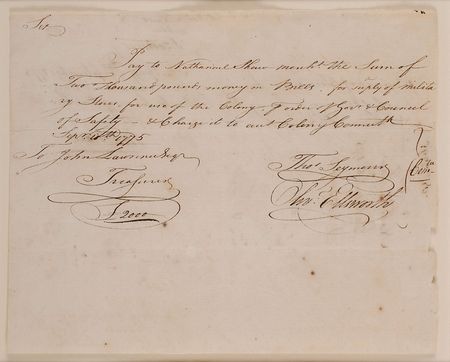 Sir
Pay to Nathaniel Shaw mercht the Sum of
Two thousand pounds money in Bills for supply of Milita
ry Stores for use of the Colony & order of Govr & Council
of Safety - & Charge it to acct Colony Connectt
Septr 1775
To John Lawrence Esqr
Treasurer
£2000
Thos Seymour
Olivr Ellsworth
Comtee